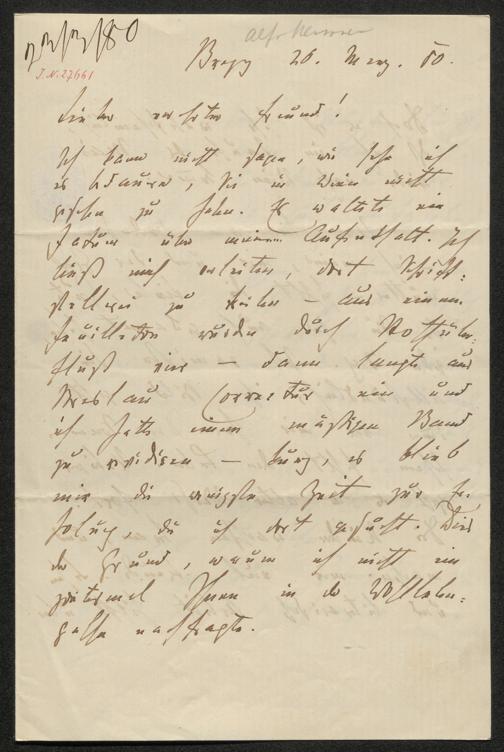 23/3/80
Alfr Klemm
J.N. 27661
Prag 26. März. 80.
Lieber verehrter Freund!
Ich kann nicht sagen, wie sehr ich
es bedaure, Sie in Wien nicht
gesehen zu haben. Es waltete ein
Fatum über meinem Aufenthalt. Ich
ließ mich verleiten, dort Schrift-
stellerei zu treiben – aus einem
Feuilleton wurden durch Stoffüber-
fluß vier – dann langte aus
Breslau Correctur ein und
ich hatte einen mäßigen Band
zu revidiren – kurz, es blieb
mir die wenigste Zeit zur Er-
holung, die ich dort gesucht. Dies
der Grund, warum ich nicht ein
zweitesmal Ihnen in der Wollzeile-
gasse nachfragte.